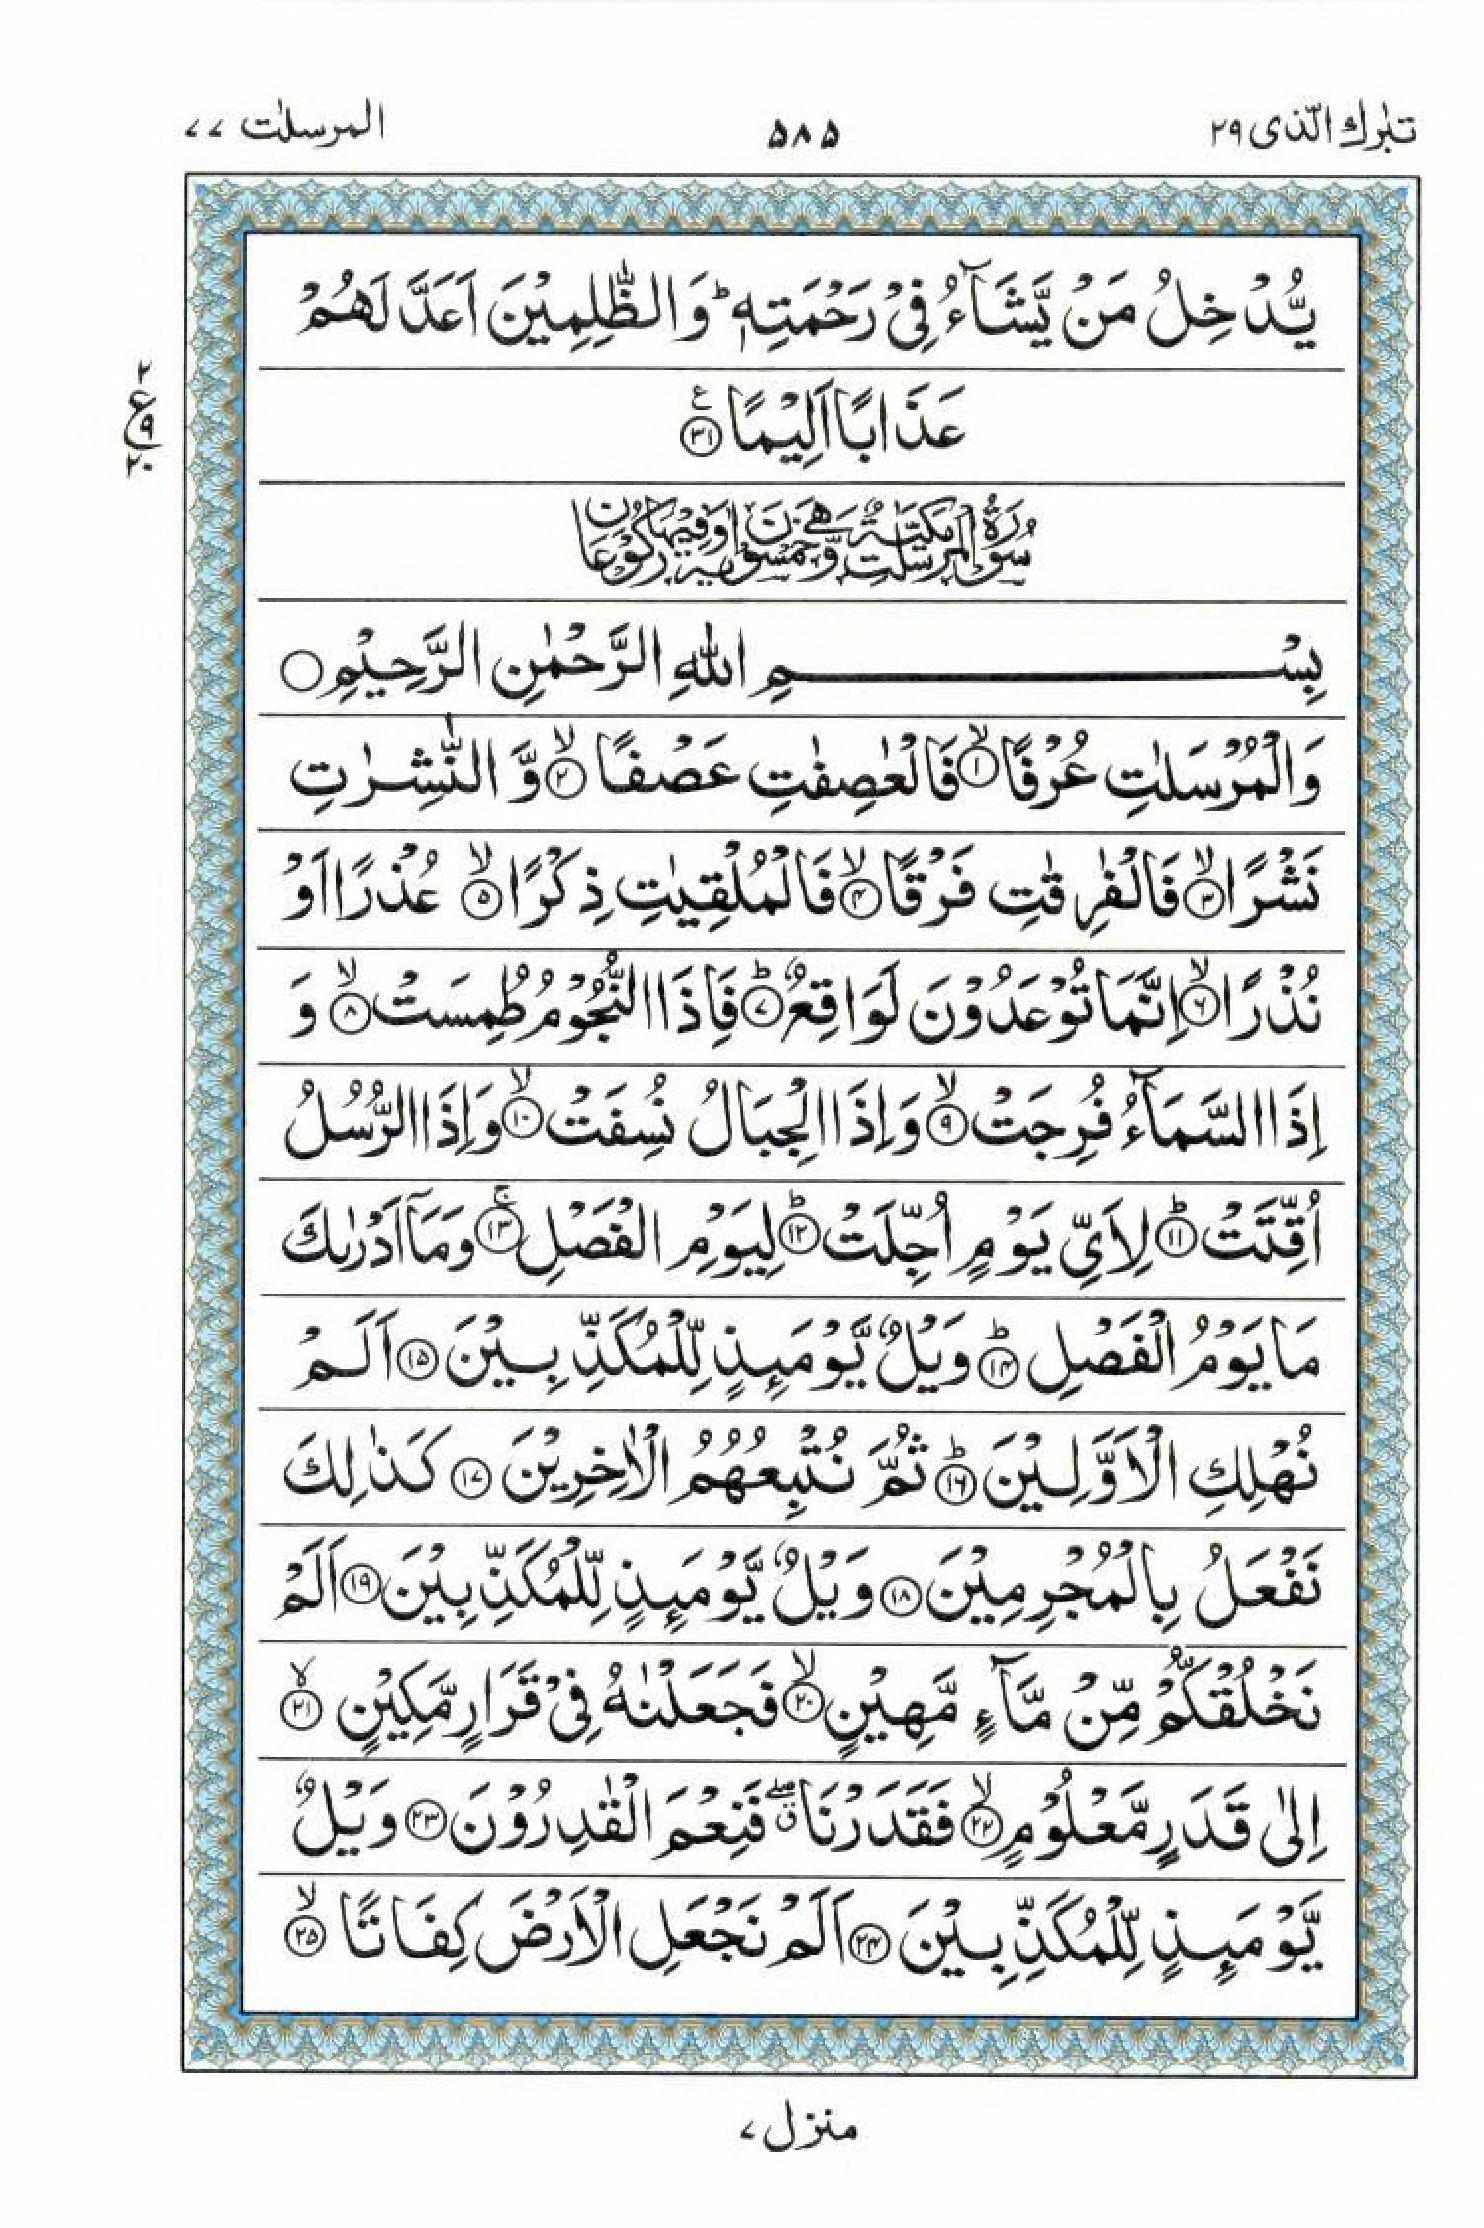 تبٰرك الّذی ۲۹
۵۸۵
المرسلٰت ۷۷
يُّدْخِلُ مَنْ يَّشَآءُ فِيْ رَحْمَتِهٖ ؕ وَالظّٰلِمِيْنَ اَعَدَّ لَهُمْ
عَذَابًا اَلِيْمًا ۳۱ ع
۲
ع ۹
۲۰
سُوْرَةُ الْمُرْسَلٰتِ مَكِّيَّةٌ وَّهِيَ خَمْسُوْنَ اٰيَةً وَّفِيْهَا رُكُوْعَانِ
بِسْمِ اللّٰهِ الرَّحْمٰنِ الرَّحِيْمِ
وَالْمُرْسَلٰتِ عُرْفًا ۙ۱ فَالْعٰصِفٰتِ عَصْفًا ۙ۲ وَّ النّٰشِرٰتِ
نَشْرًا ۙ۳ فَالْفٰرِقٰتِ فَرْقًا ۙ۴ فَالْمُلْقِيٰتِ ذِكْرًا ۙ۵ عُذْرًا اَوْ
نُذْرًا ۙ۶ اِنَّمَا تُوْعَدُوْنَ لَوَاقِعٌ ؕ۷ فَاِذَا النُّجُوْمُ طُمِسَتْ ۙ۸ وَ
اِذَا السَّمَآءُ فُرِجَتْ ۙ۹ وَاِذَا الْجِبَالُ نُسِفَتْ ۙ۱۰ وَاِذَا الرُّسُلُ
اُقِّتَتْ ؕ۱۱ لِاَيِّ يَوْمٍ اُجِّلَتْ ؕ۱۲ لِيَوْمِ الْفَصْلِ ۚ۱۳ وَمَآ اَدْرٰىكَ
مَا يَوْمُ الْفَصْلِ ؕ۱۴ وَيْلٌ يَّوْمَىِٕذٍ لِّلْمُكَذِّبِيْنَ ۱۵ اَلَمْ
نُهْلِكِ الْاَوَّلِيْنَ ؕ۱۶ ثُمَّ نُتْبِعُهُمُ الْاٰخِرِيْنَ ۱۷ كَذٰلِكَ
نَفْعَلُ بِالْمُجْرِمِيْنَ ۱۸ وَيْلٌ يَّوْمَىِٕذٍ لِّلْمُكَذِّبِيْنَ ۱۹ اَلَمْ
نَخْلُقْكُّمْ مِّنْ مَّآءٍ مَّهِيْنٍ ۙ۲۰ فَجَعَلْنٰهُ فِيْ قَرَارٍ مَّكِيْنٍ ۙ۲۱
اِلٰى قَدَرٍ مَّعْلُوْمٍ ۙ۲۲ فَقَدَرْنَا ۖق فَنِعْمَ الْقٰدِرُوْنَ ۲۳ وَيْلٌ
يَّوْمَىِٕذٍ لِّلْمُكَذِّبِيْنَ ۲۴ اَلَمْ نَجْعَلِ الْاَرْضَ كِفَاتًا ۙ۲۵
منزل ۷